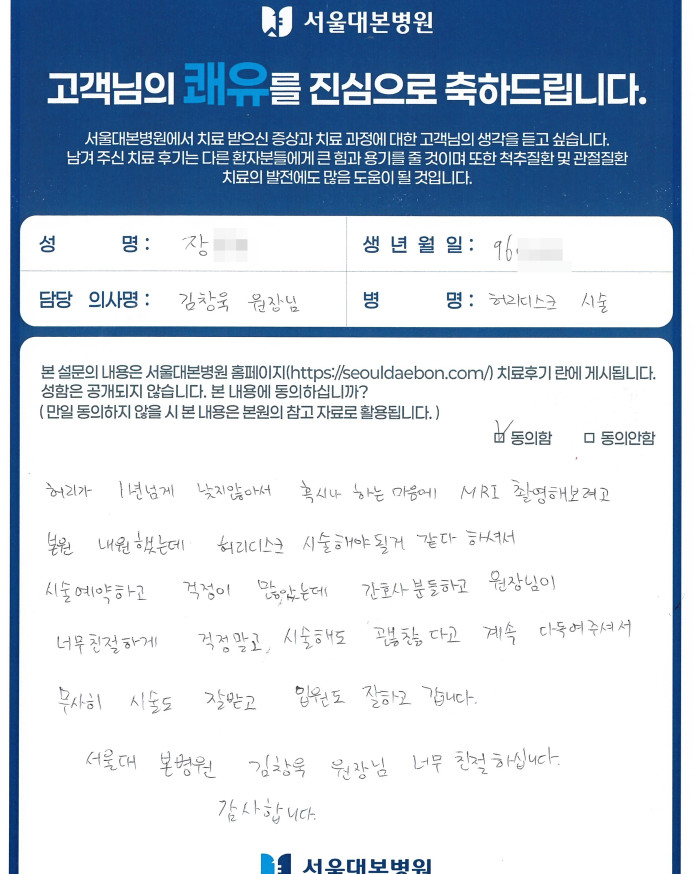 서울대본병원
고객님의 쾌유를 진심으로 축하드립니다.
서울대본병원에서 치료 받으신 증상과 치료 과정에 대한 고객님의 생각을 듣고 싶습니다.
남겨 주신 치료 후기는 다른 환자분들에게 큰 힘과 용기를 줄 것이며 또한 척추질환 및 관절질환
치료의 발전에도 많음 도움이 될 것입니다.
성 명 : 장 생 년 월 일 : 96.
담당 의사명 : 김창욱 원장님 병 명 : 허리디스크 시술
본 설문의 내용은 서울대본병원 홈페이지(https://seouldaebon.com/) 치료후기 란에 게시됩니다.
성함은 공개되지 않습니다. 본 내용에 동의하십니까?
( 만일 동의하지 않을 시 본 내용은 본원의 참고 자료로 활용됩니다. )
☑ 동의함 □ 동의안함
허리가 1년넘게 낫지않아서 혹시나 하는 마음에 MRI 촬영해보려고
본원 내원했는데 허리디스크 시술해야될거 같다 하셔서
시술예약하고 걱정이 많았는데 간호사분들하고 원장님이
너무친절하게 걱정말고, 시술해도 괜찮다고 계속 다독여주셔서
무사히 시술도 잘받고 입원도 잘하고 갑니다.
서울대 본병원 김창욱 원장님 너무 친절하십니다.
감사합니다.
서울대본병원